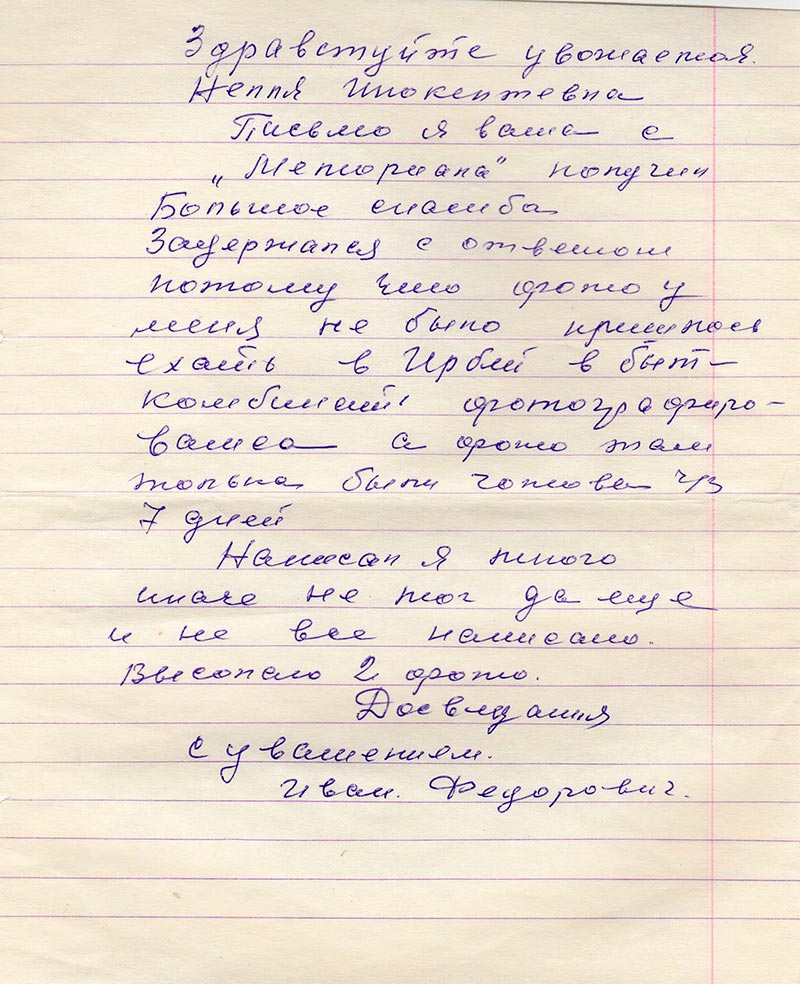 Здравствуйте уважаемая.
Нелля Инокентевна
Письмо я ваша с
„Мемориала“ получил
Большое спасиба
Задержался с ответом
потому что фото у
меня не было пришлось
ехать в Ирбей в быт-
комбинат фотографиро-
ватса а фото там
только были готова ч/з
7 дней
Написал я много
иначе не мог да еще
и не все написано.
Высопаю 2 фото.
Досвидания
с уважением.
Иван. Федорович.